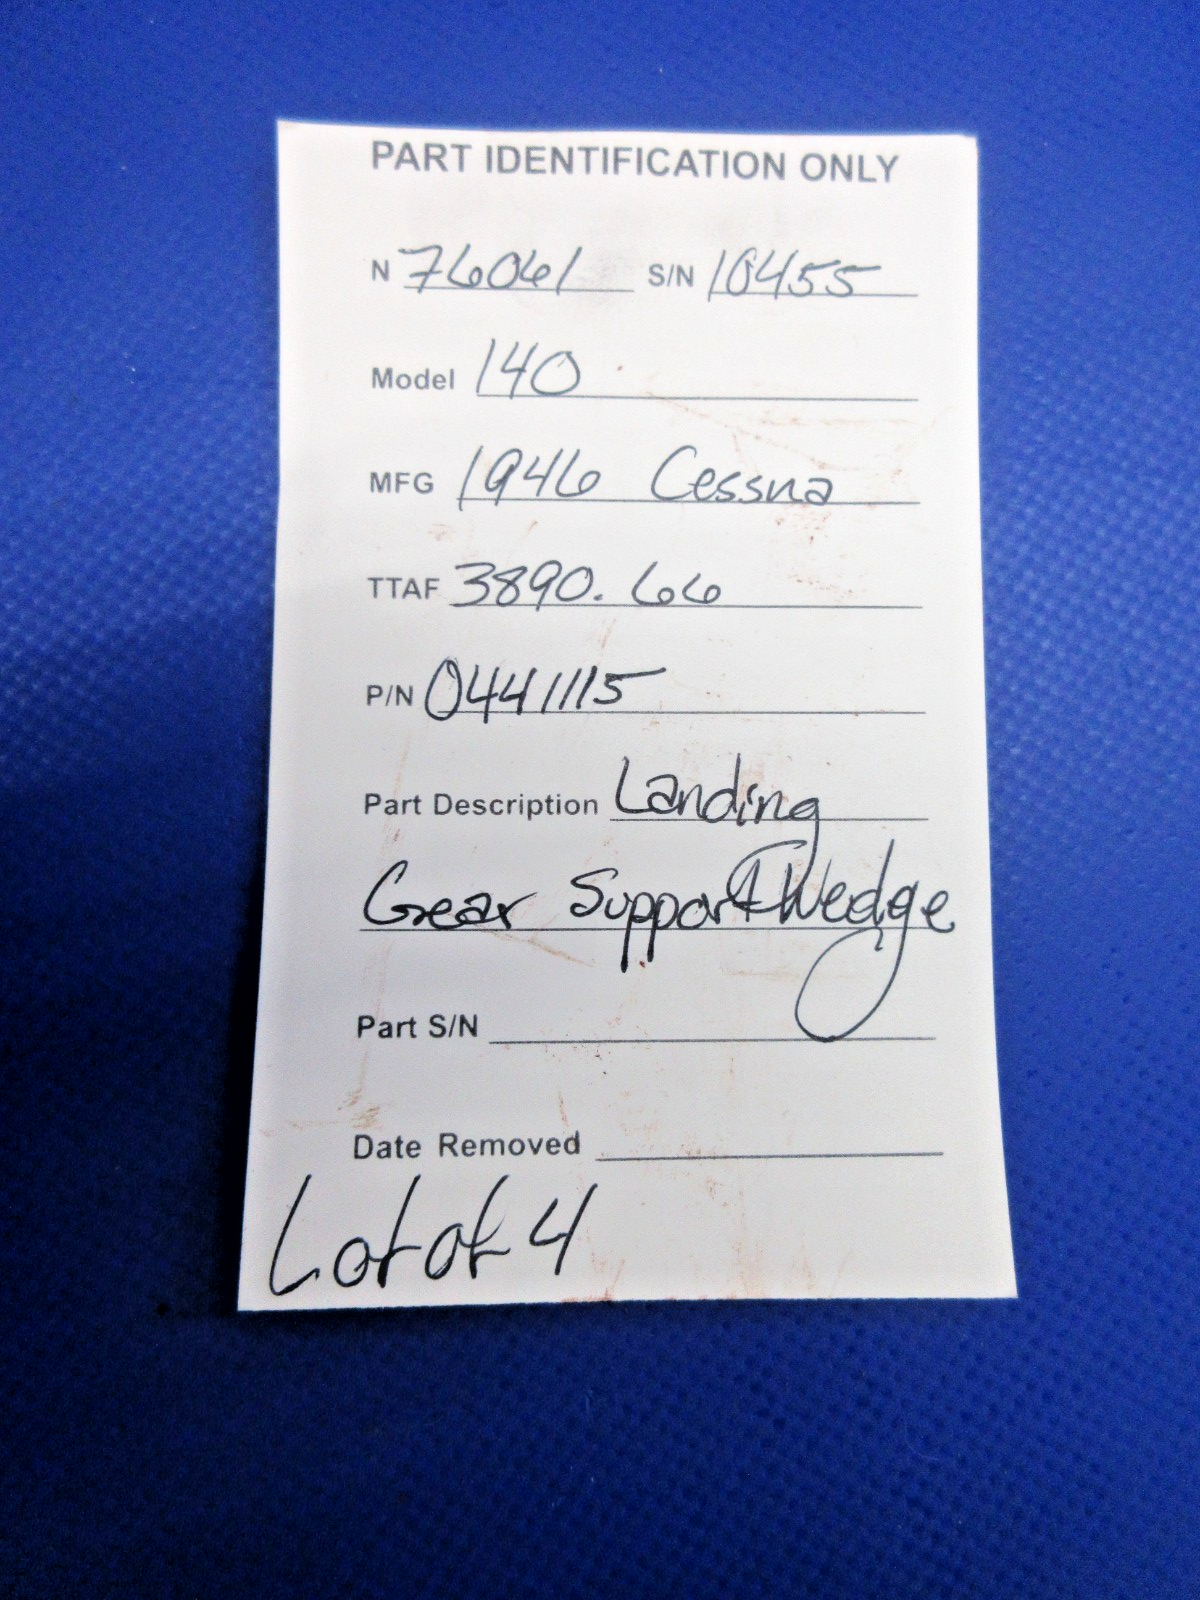 PART IDENTIFICATION ONLY
N 76061 S/N 10455
Model 140
MFG 1946 Cessna
TTAF 3890.66
P/N 0441115
Part Description Landing
Gear Support Wedge
Part S/N
Date Removed
Lot of 4